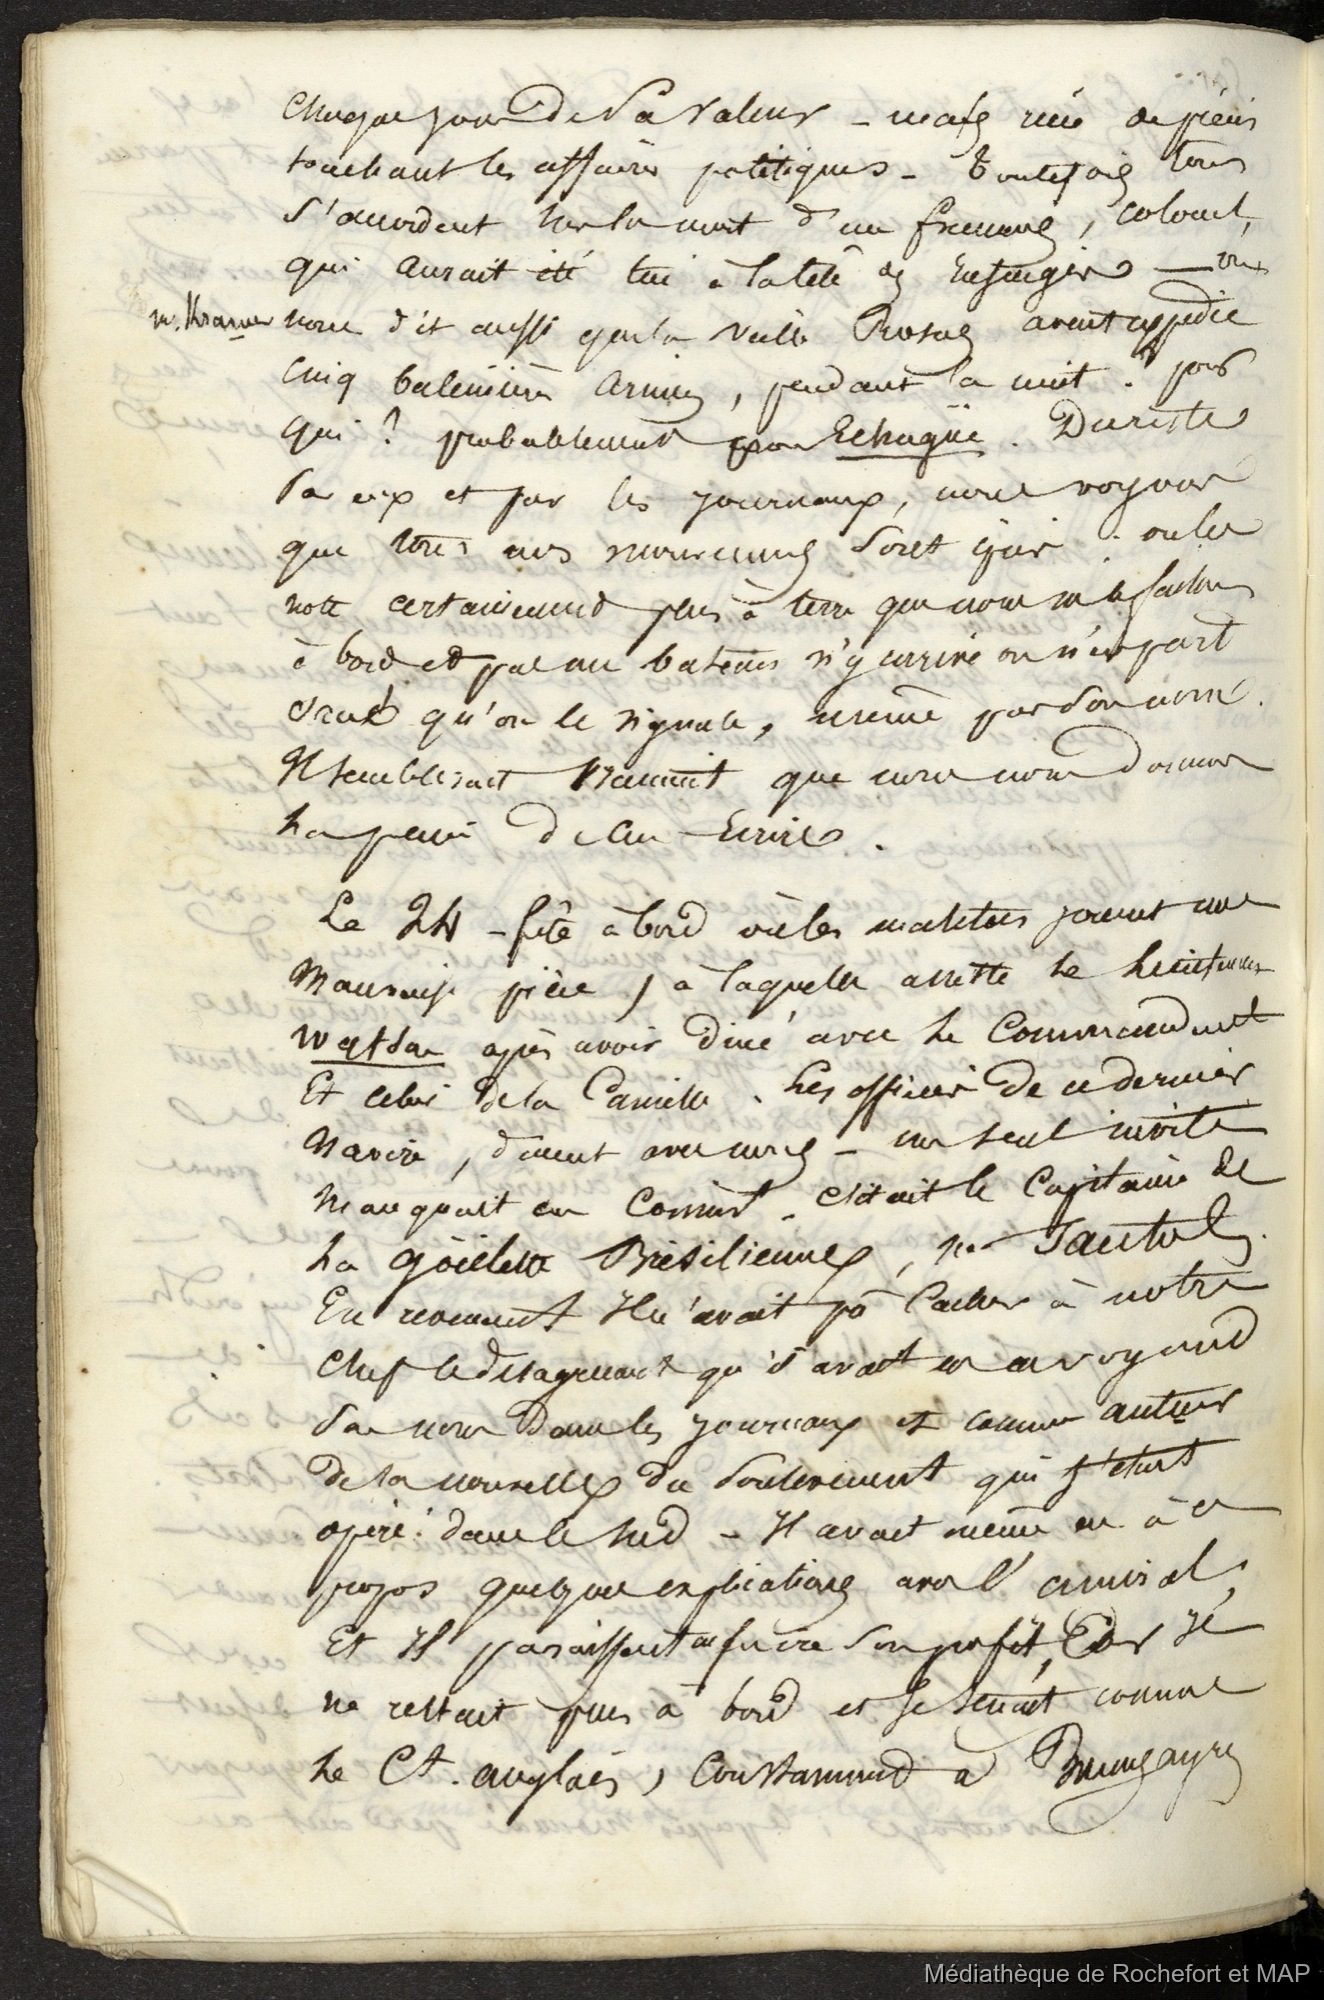 chaque jour de sa valeur - mais rien de précis
touchant les affaires politiques - Toutefois tous
s'accordent sur la mort d'un français, colonel,
qui aurait été tué à la tête des Insurgés - on
m. Kramer nous dit aussi que la veille Rosas avait expédié
cinq baleinières armées, pendant la nuit. pour
qui ? probablement pour Echagüe. Du reste
par eux et par les journaux, nous voyons
que tous nos mouvements sont épiés : on les
note certainement plus à terre que nous ne le faisons
à bord et pas un bateau n'y arrive ou n'en part
sans qu'on le signale, même par son nom.
Ils sembleraient vraiment que nous nous donnons
la peine de leur écrire.
Le 24 - fête à bord où les matelots jouent une
mauvaise pièce, à laquelle assiste le lieutenant
Watson après avoir diné avec le Commandant
Et celui de la Camille. Les officiers de ce dernier
navire, dinent avec nous - un seul invité
manquait au Commt. c'était le Capitaine de
la Goëlette Brésilienne, mr
En revenant Il n'avait pû cacher à notre
chef le désagrément qu'il avait eu en voyant
son nom dans les journaux et comme auteur
de la nouvelle du soulèvement qui s'était
opéré dans le sud - Il avait même eu à ce
propos quelques explications avec l'amiral,
Et Il paraissait en faire son profit, Car Il
ne restait plus à bord et se tenait comme
le Ct. anglais, constamment à Buenos ayres